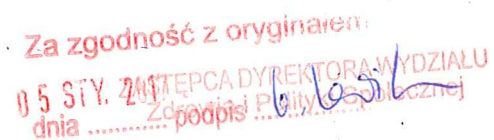 Za zgodność z oryginałem
05 STY. 2017 ZASTĘPCA DYREKTORA WYDZIAŁU
Zdrowia i Polityki Społecznej
dnia ............ podpis ............